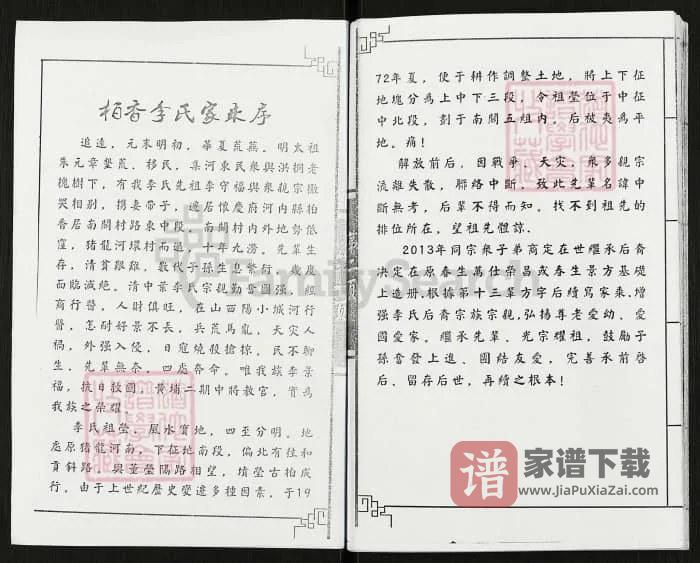 柏香李氏家乘序
追遠，元末明初，華夏荒蕪，明太祖
朱元章墾荒、移民，集河東民衆與洪桐老
槐樹下，有我李氏先祖李守福與衆親宗徹
哭相别，携妻帶子，遷居懷慶府河内縣柏
香居南關村路東中段，南關村内外地勢低
窪，猪龍河環村而過，十年九澇。先輩生
存，清貧艱難，数代子孫生息繁衍，幾度
面臨滅絶。清中葉李氏宗親勤奮圖强，經
商行醫，人財俱旺，在山西陽小城河行
醫，怎耐好景不長，兵荒馬亂，天灾人
禍，外强入侵，日寇燒殺搶掠，民不聊
生，先輩無奈，四處奔命。唯我族李景
福，抗日救國，黄埔二期中將教官，實爲
我族之荣耀。
李氏祖塋，風水寶地，四至分明。地
處原猪龍河南，下征地南段，偏北有往和
貢斜路，與董塋隔路相望，墳塋古柏成
行，由于上世紀歷史變遷多種因素，于19
72年夏，便于耕作調整土地，將上下征
地塊分爲上中下三段，令祖塋位于中征
中北段，劃于南關五組内，后被夷爲平
地。痛！
解放前后，因戰争、天灾，衆多親宗
流離失散，聯絡中斷，致此先輩名諱中
斷無考，后輩不得而知。找不到祖先的
排位所在，望祖先體諒。
2013年同宗衆子弟商定在世繼承后裔
决定在原春生萬仕荣昌茂春生景方基礎
上造册，根據第十三輩方字后續寫家乘，增
强李氏后裔宗族宗親，弘揚尊老愛幼、愛
國愛家。繼承先輩、光宗耀祖，鼓励子
孫奮發上進、團結友愛，完善承前啓
后、留存后世，再續之根本！
FamilySearch
譜
家谱下载
www.JiaPuXiaZai.com